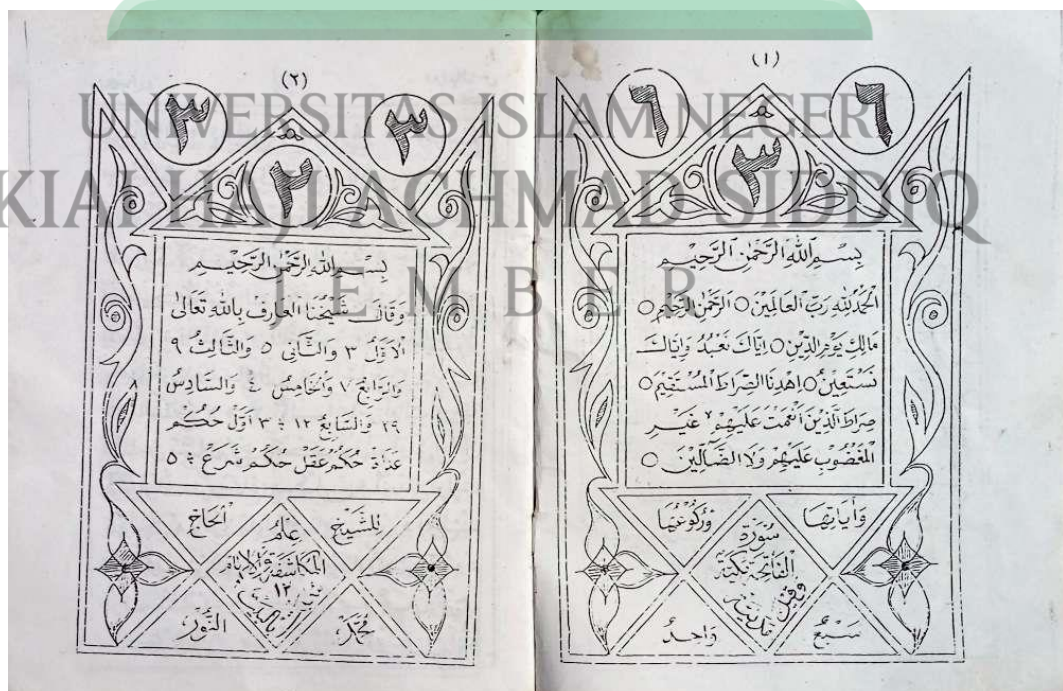 UNIVERSITAS ISLAM NEGERI
KIAI HAJI ACHMAD SIDDIQ
JEMBER
(١)
٦ ٦
٣
بِسْمِ اللهِ الرَّحْمٰنِ الرَّحِيْمِ
اَلْحَمْدُ لِلّٰهِ رَبِّ الْعَالَمِيْنَ ○ الرَّحْمٰنِ الرَّحِيْمِ ○
مَالِكِ يَوْمِ الدِّيْنِ ○ اِيَّاكَ نَعْبُدُ وَاِيَّاكَ
نَسْتَعِيْنُ ○ اِهْدِنَا الصِّرَاطَ الْمُسْتَقِيْمَ ○
صِرَاطَ الَّذِيْنَ اَنْعَمْتَ عَلَيْهِمْ غَيْرِ
الْمَغْضُوْبِ عَلَيْهِمْ وَلَا الضَّآلِّيْنَ ○
وَاٰيَاتُهَا
سُوْرَةُ
وَرُكُوْعُهَا
الْفَاتِحَةِ مَكِّيَّةٌ
سَبْعٌ
وَاحِدٌ
(٢)
٣ ٣
٢
بِسْمِ اللهِ الرَّحْمٰنِ الرَّحِيْمِ
وَقَالَ شَيْخُنَا الْعَارِفُ بِاللهِ تَعَالٰى
اَلْاَوَّلُ ٣ وَالثَّانِى ٥ وَالثَّالِثُ ٩
وَالرَّابِعُ ٧ وَالْخَامِسُ ٤ وَالسَّادِسُ
٢٩ وَالسَّابِعُ ١٢ ÷ ٣ اَوَّلْ حُكُمْ
عَادَةْ حُكُمْ عَقَلْ حُكُمْ شَرَعْ ÷ ٥
لِلشَّيْخِ
اَلْحَاجْ
اَلْمُكَاشَفَةِ
١٢
مُحَمَّدْ
النُّوْرْ